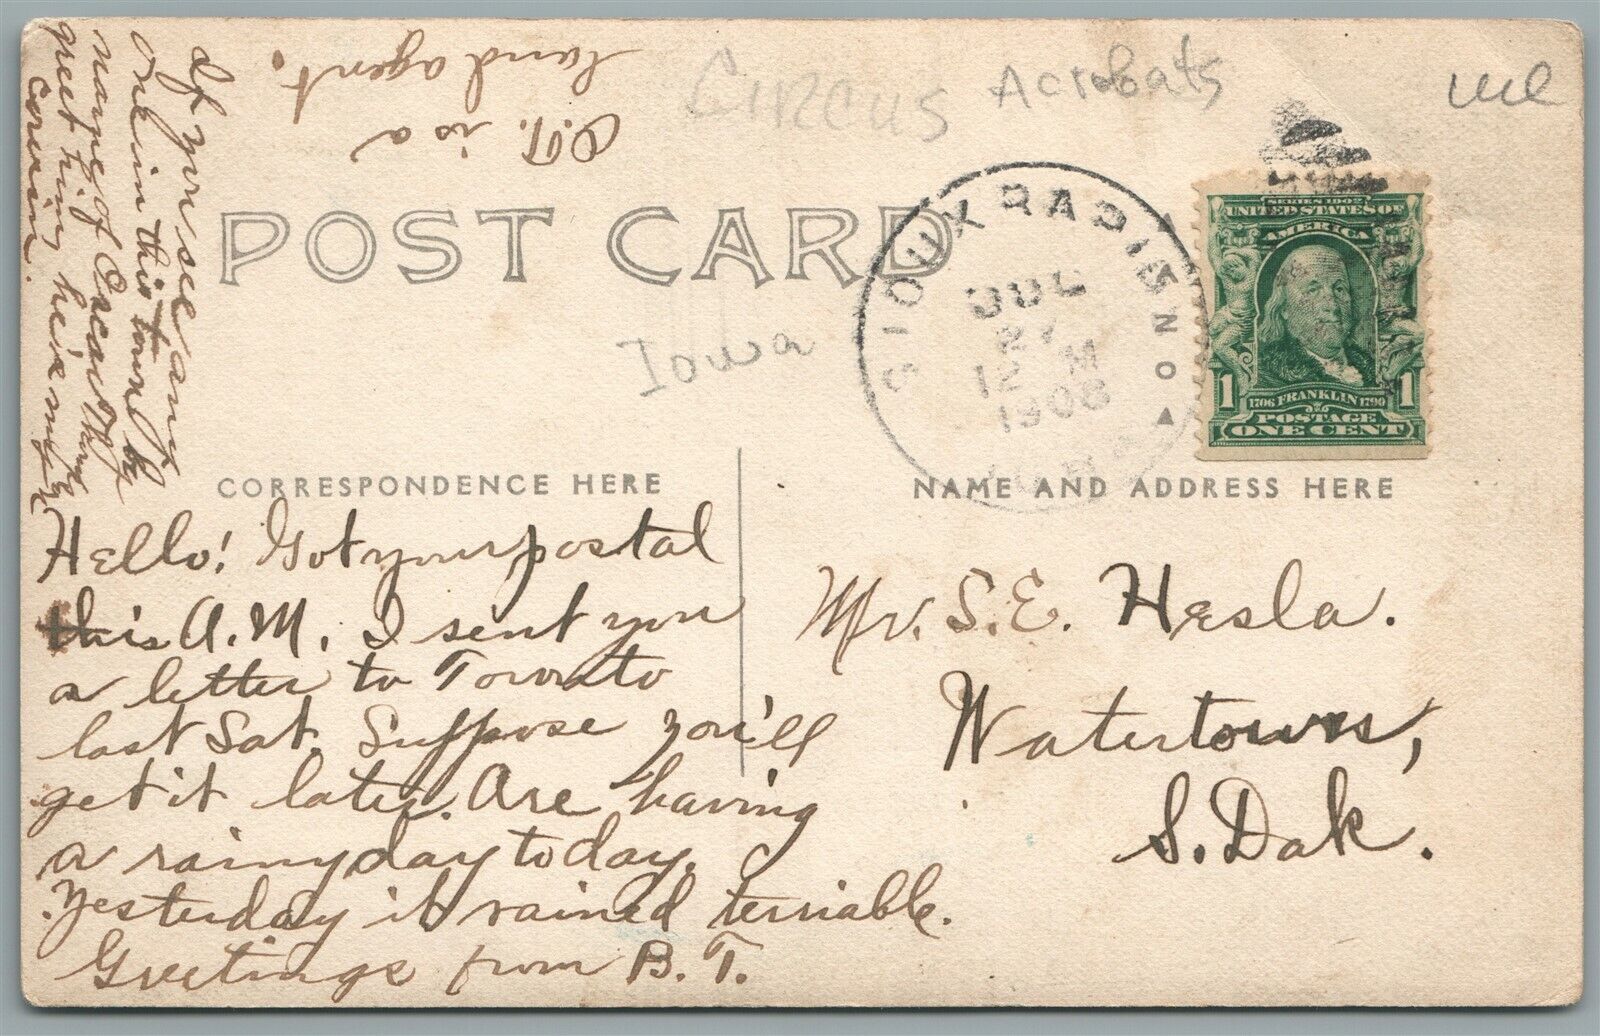 Circus Acrobats
O.T. is a
land agent.
If you see any
One in this town by
name of Oscar
greet him, he's my
cousin.
POST CARD
Iowa
SIOUX RAPIDS
JUL
27
12 M
1908
SERIES 1902
UNITED STATES OF
AMERICA
1 1
1706 FRANKLIN 1790
POSTAGE
ONE CENT
CORRESPONDENCE HERE
NAME AND ADDRESS HERE
Hello! Got your postal
this A.M. I sent you
a letter to Toronto
last Sat. Suppose you'll
get it later. Are having
a rainy day today.
Yesterday it rained terriable.
Greetings from B. T.
Mr. S. E. Hesla.
Watertown,
S. Dak.